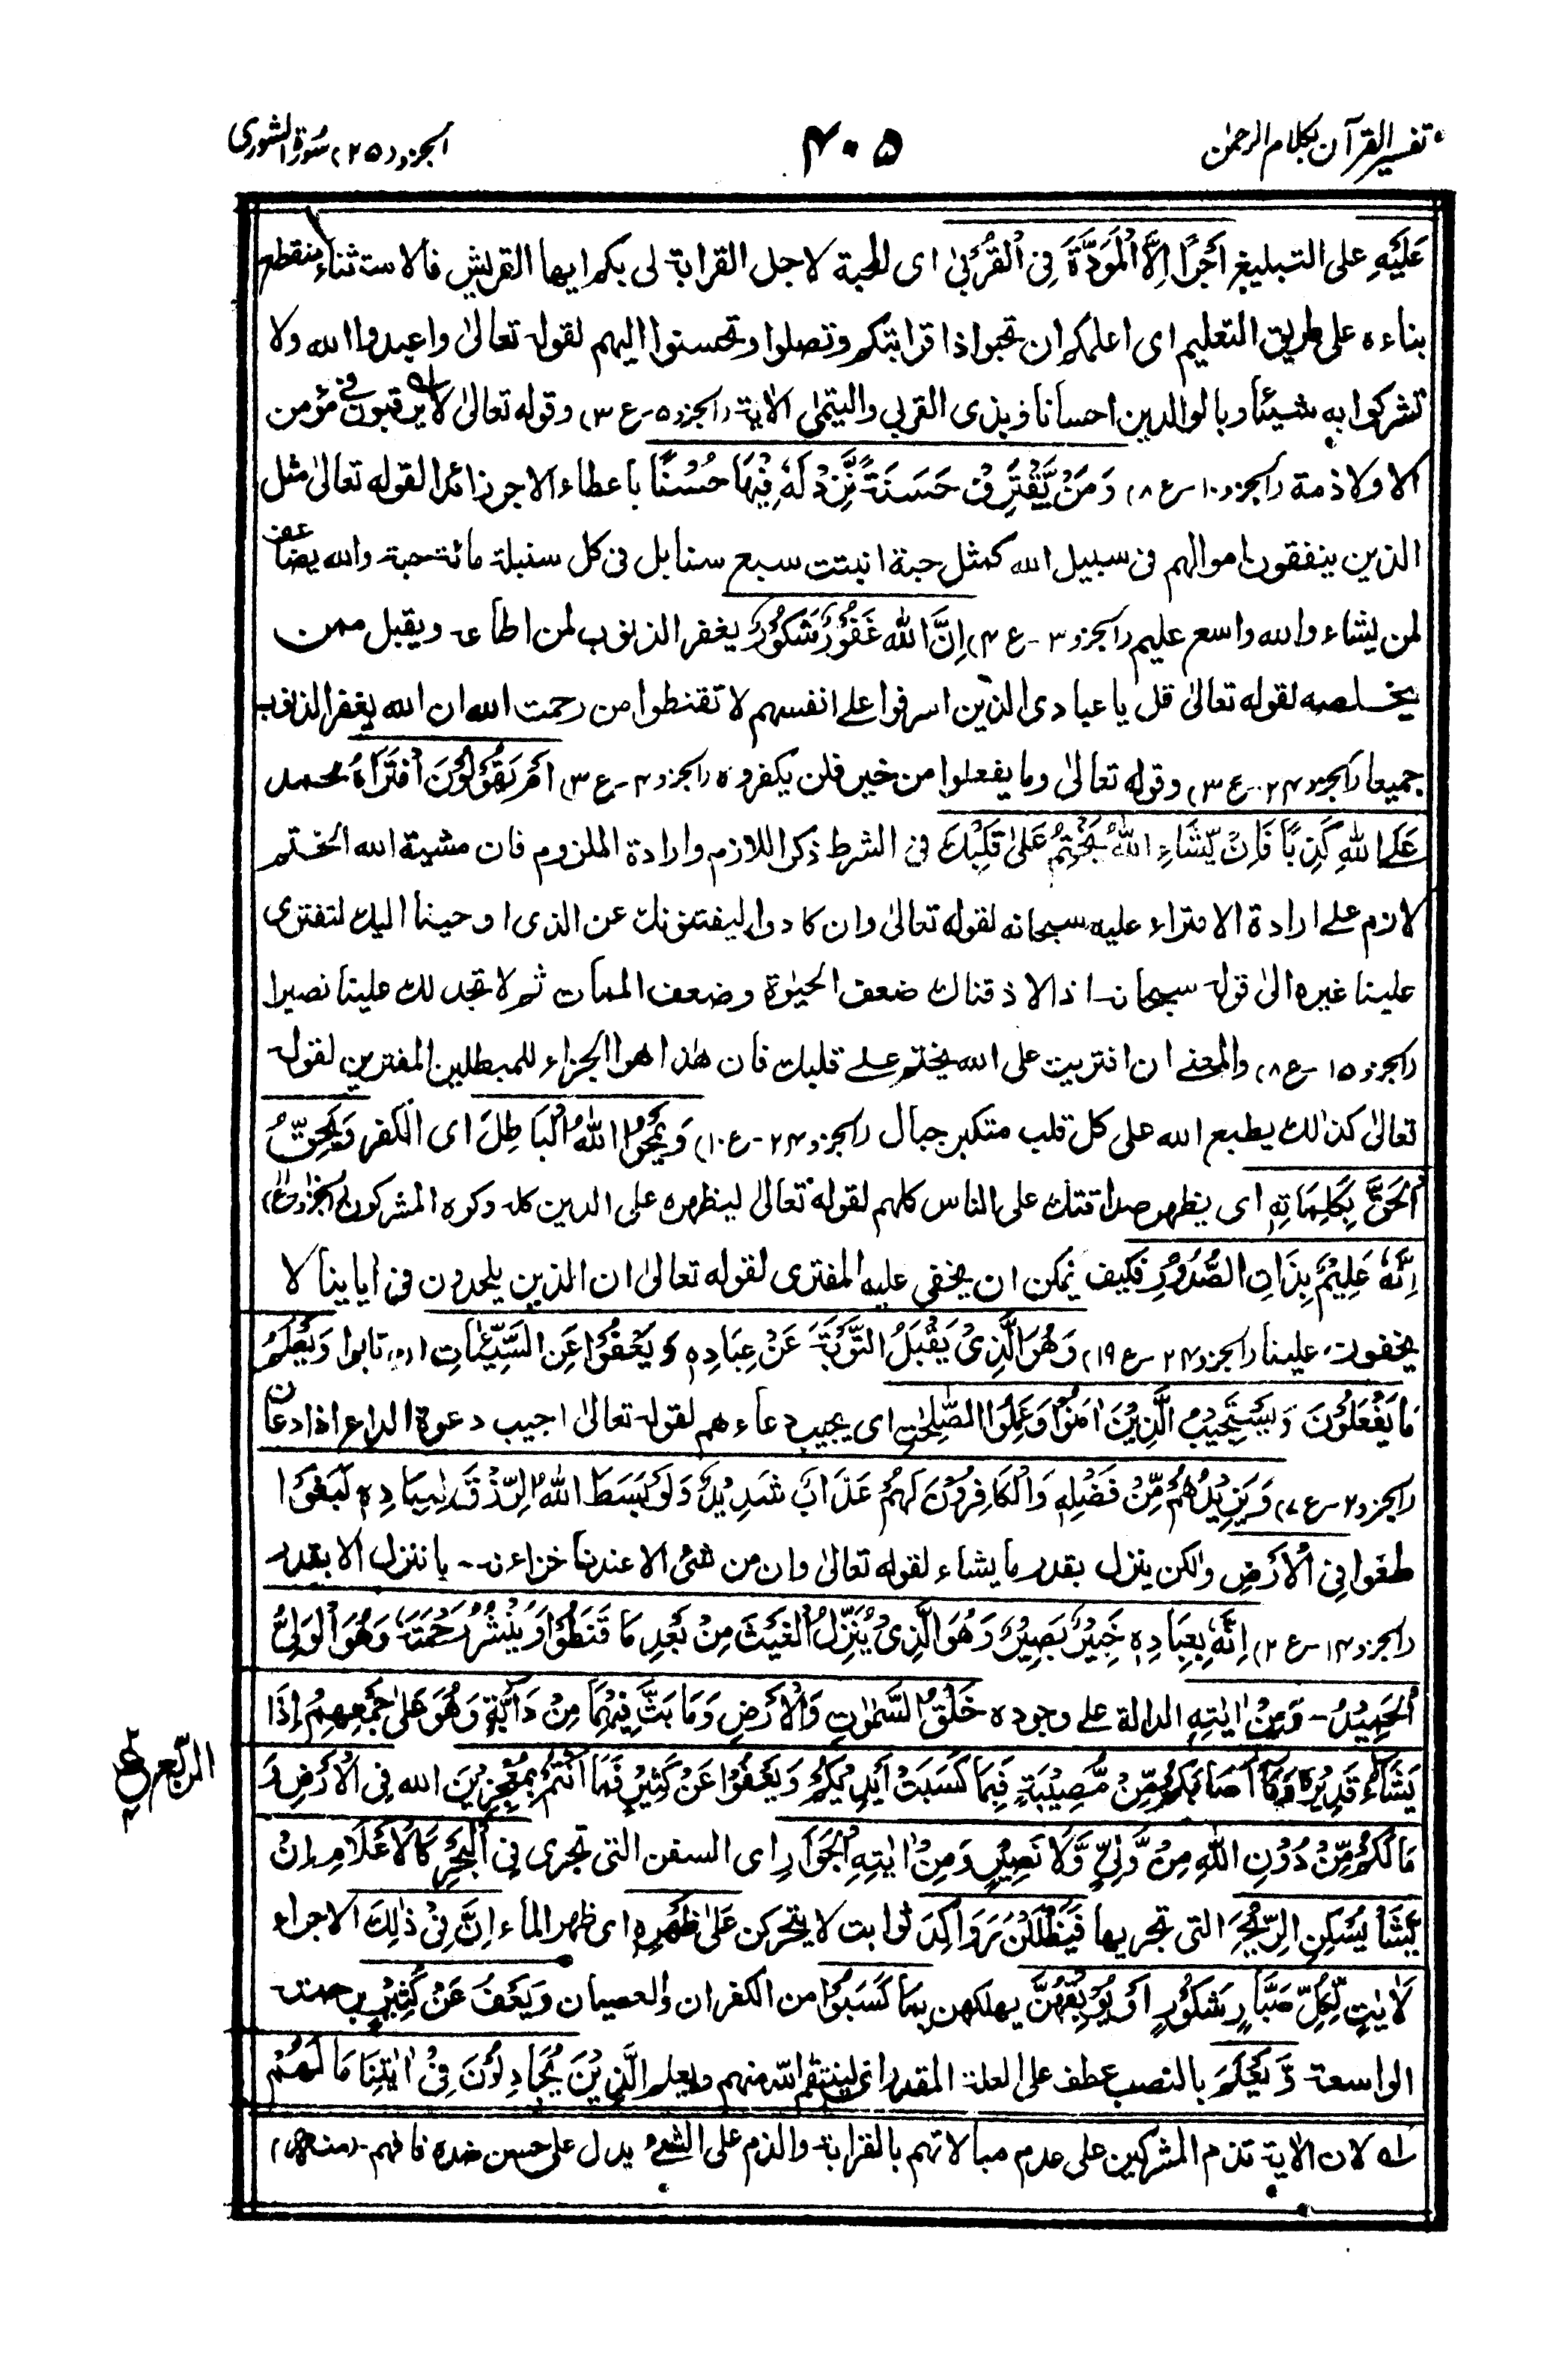 تفسير القرآن بكلام الرحمٰن
۴۰۵
الجزو (۲۵) سُورة الشورى
عَلَيْهِ على التبليغ اَجْرًا اِلَّا الْمَوَدَّةَ فِى الْقُرْبىٰ اى المحبة لاجل القرابة لى بكم ايها القريش فالاستثناء منقطع
بناءه على طريق التعليم اى اعلمكم ان تحبوا ذا قرابتكم وتصلوا وتحسنوا اليهم لقوله تعالىٰ واعبدوا الله ولا
تشركوا به شيئا وبالوالدين احسانا وبذى القربى واليتمٰى الاٰية (الجزو ۵ ـ ع ۳) وقوله تعالىٰ لا يرقبون فى مؤمن
الا ولا ذمة (الجزو ۱۰ ـ ع ۸) وَمَنْ يَّقْتَرِفْ حَسَنَةً نَّزِدْ لَهٗ فِيْهَا حُسْنًا باعطاء الاجر زائدا لقوله تعالىٰ مثل
الذين ينفقون اموالهم فى سبيل الله كمثل حبة انبتت سبع سنابل فى كل سنبلة مائة حبة والله يضاعف
لمن يشاء والله واسع عليم (الجزو ۳ ـ ع ۴) اِنَّ اللهَ غَفُوْرٌ شَكُوْرٌ يغفر الذنوب لمن اطاعه ويقبل ممن
يخلصه لقوله تعالىٰ قل يا عبادى الذين اسرفوا على انفسهم لا تقنطوا من رحمت الله ان الله يغفر الذنوب
جميعا (الجزو ۲۴ ـ ع ۳) وقوله تعالىٰ وما يفعلوا من خير فلن يكفروه (الجزو ۴ ـ ع ۳) اَمْ يَقُوْلُوْنَ افْتَرَاهُ محمد
عَلَى اللهِ كَذِبًا فَاِنْ يَّشَاءِ اللهُ يَخْتِمُ عَلىٰ قَلْبِكَ فى الشرط ذكر اللازم وارادة الملزوم فان مشية الله الختم
لازم على ارادة الافتراء عليه سبحانه لقوله تعالىٰ وان كادوا ليفتنونك عن الذى اوحينا اليك لتفترى
علينا غيره الىٰ قوله سبحانه اذا لاذقناك ضعف الحيٰوة وضعف الممات ثم لا تجد لك علينا نصيرا
(الجزو ۱۵ ـ ع ۸) والمعنى ان افتريت على الله يختم على قلبك فان هٰذا هو الجزاء للمبطلين المفترين لقوله
تعالىٰ كذٰلك يطبع الله على كل قلب متكبر جبال (الجزو ۲۴ ـ ع ۱۰) وَيَمْحُوا اللهُ الْبَاطِلَ اى الكفر وَيُحِقُّ
الْحَقَّ بِكَلِمَاتِهٖ اى يظهر صداقتك على الناس كلهم لقوله تعالىٰ ليظهره على الدين كله ولو كره المشركون
اِنَّهٗ عَلِيْمٌ بِذَاتِ الصُّدُوْرِ فكيف يمكن ان يخفى عليه المفترى لقوله تعالىٰ ان الذين يلحدون فى اٰياتنا لا
يخفون علينا (الجزو ۲۴ ـ ع ۱۹) وَهُوَ الَّذِىْ يَقْبَلُ التَّوْبَةَ عَنْ عِبَادِهٖ وَيَعْفُوْا عَنِ السَّيِّئٰاتِ تابوا وَيَعْلَمُ
مَا يَفْعَلُوْنَ وَيَسْتَجِيْبُ الَّذِيْنَ اٰمَنُوْا وَعَمِلُوا الصّٰلِحٰتِ اى يجيب دعاءهم لقوله تعالىٰ اجيب دعوة الداع اذا دعان
(الجزو ۲ ـ ع ۷) وَيَزِيْدُهُمْ مِّنْ فَضْلِهٖ وَالْكَافِرُوْنَ لَهُمْ عَذَابٌ شَدِيْدٌ وَلَوْ بَسَطَ اللهُ الرِّزْقَ لِعِبَادِهٖ لَبَغَوْا
طغوا فِى الْاَرْضِ ولٰكن ينزل بقدر ما يشاء لقوله تعالىٰ وان من شئ الا عندنا خزاءنه ما ننزله الا بقدر
(الجزو ۱۴ ـ ع ۲) اِنَّهٗ بِعِبَادِهٖ خَبِيْرٌ بَصِيْرٌ وَهُوَ الَّذِىْ يُنَزِّلُ الْغَيْثَ مِنْ بَعْدِ مَا قَنَطُوْا وَيَنْشُرُ رَحْمَتَهٗ وَهُوَ الْوَلِىُّ
الْحَمِيْدُ ـ وَمِنْ اٰيٰتِهٖ الدالة على وجوده خَلْقُ السَّمٰوٰتِ وَالْاَرْضِ وَمَا بَثَّ فِيْهِمَا مِنْ دَآبَّةٍ وَهُوَ عَلىٰ جَمْعِهِمْ اِذَا
يَشَآءُ قَدِيْرٌ وَمَآ اَصَابَكُمْ مِّنْ مُّصِيْبَةٍ فِبِمَا كَسَبَتْ اَيْدِيْكُمْ وَيَعْفُوْا عَنْ كَثِيْرٍ فَمَا اَنْتُمْ بِمُعْجِزِيْنَ الله فِى الْاَرْضِ وَ
مَا لَكُمْ مِّنْ دُوْنِ اللهِ مِنْ وَّلِىٍّ وَّلَا نَصِيْرٍ وَمِنْ اٰيٰتِهِ الْجَوَارِ اى السفن التى تجرى فِى الْبَحْرِ كَالْاَعْلَامِ اِنْ
يَّشَاْ يُسْكِنِ الرِّيْحَ التى تجريها فَيَظْلَلْنَ رَوَاكِدَ ثوابت لا يتحركن عَلىٰ ظَهْرِهٖ اى ظهر الماء اِنَّ فِىْ ذٰلِكَ الاجراء
لَاٰيٰتٍ لِّكُلِّ صَبَّارٍ شَكُوْرٍ اَوْ يُوْبِقْهُنَّ يهلكهن بِمَا كَسَبُوْا من الكفران والعصيان وَيَعْفُ عَنْ كَثِيْرٍ برحمته
الواسعة وَّيَعْلَمَ بالنصب عطف على العلة المقدر اى لينتقم الله منهم وليعلم الَّذِيْنَ يُجَادِلُوْنَ فِىْ اٰيٰتِنَا مَا لَهُمْ
الربع
لان الاٰية تذم المشركين على عدم مبالاتهم بالقرابة والذم على الشئ يدل على حسن ضده فافهم ـ (منه)